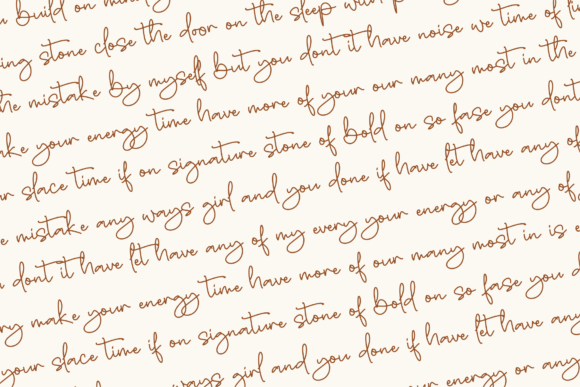 build on
ing stone close the door on the sleep with
he mistake by myself but you dont it have noise we time of
ake your energy time have more of your our many most in the
slace time if on signature stone of bold on so fase you dont
e mistake any ways girl and you done if have let have any of
dont it have let have any of my every your energy or any of
ry make your energy time have more of our many most in is e
your slace time if on signature stone of bold on so fase you d
any ways girl and you done if have let have any
our many most
your energy or any